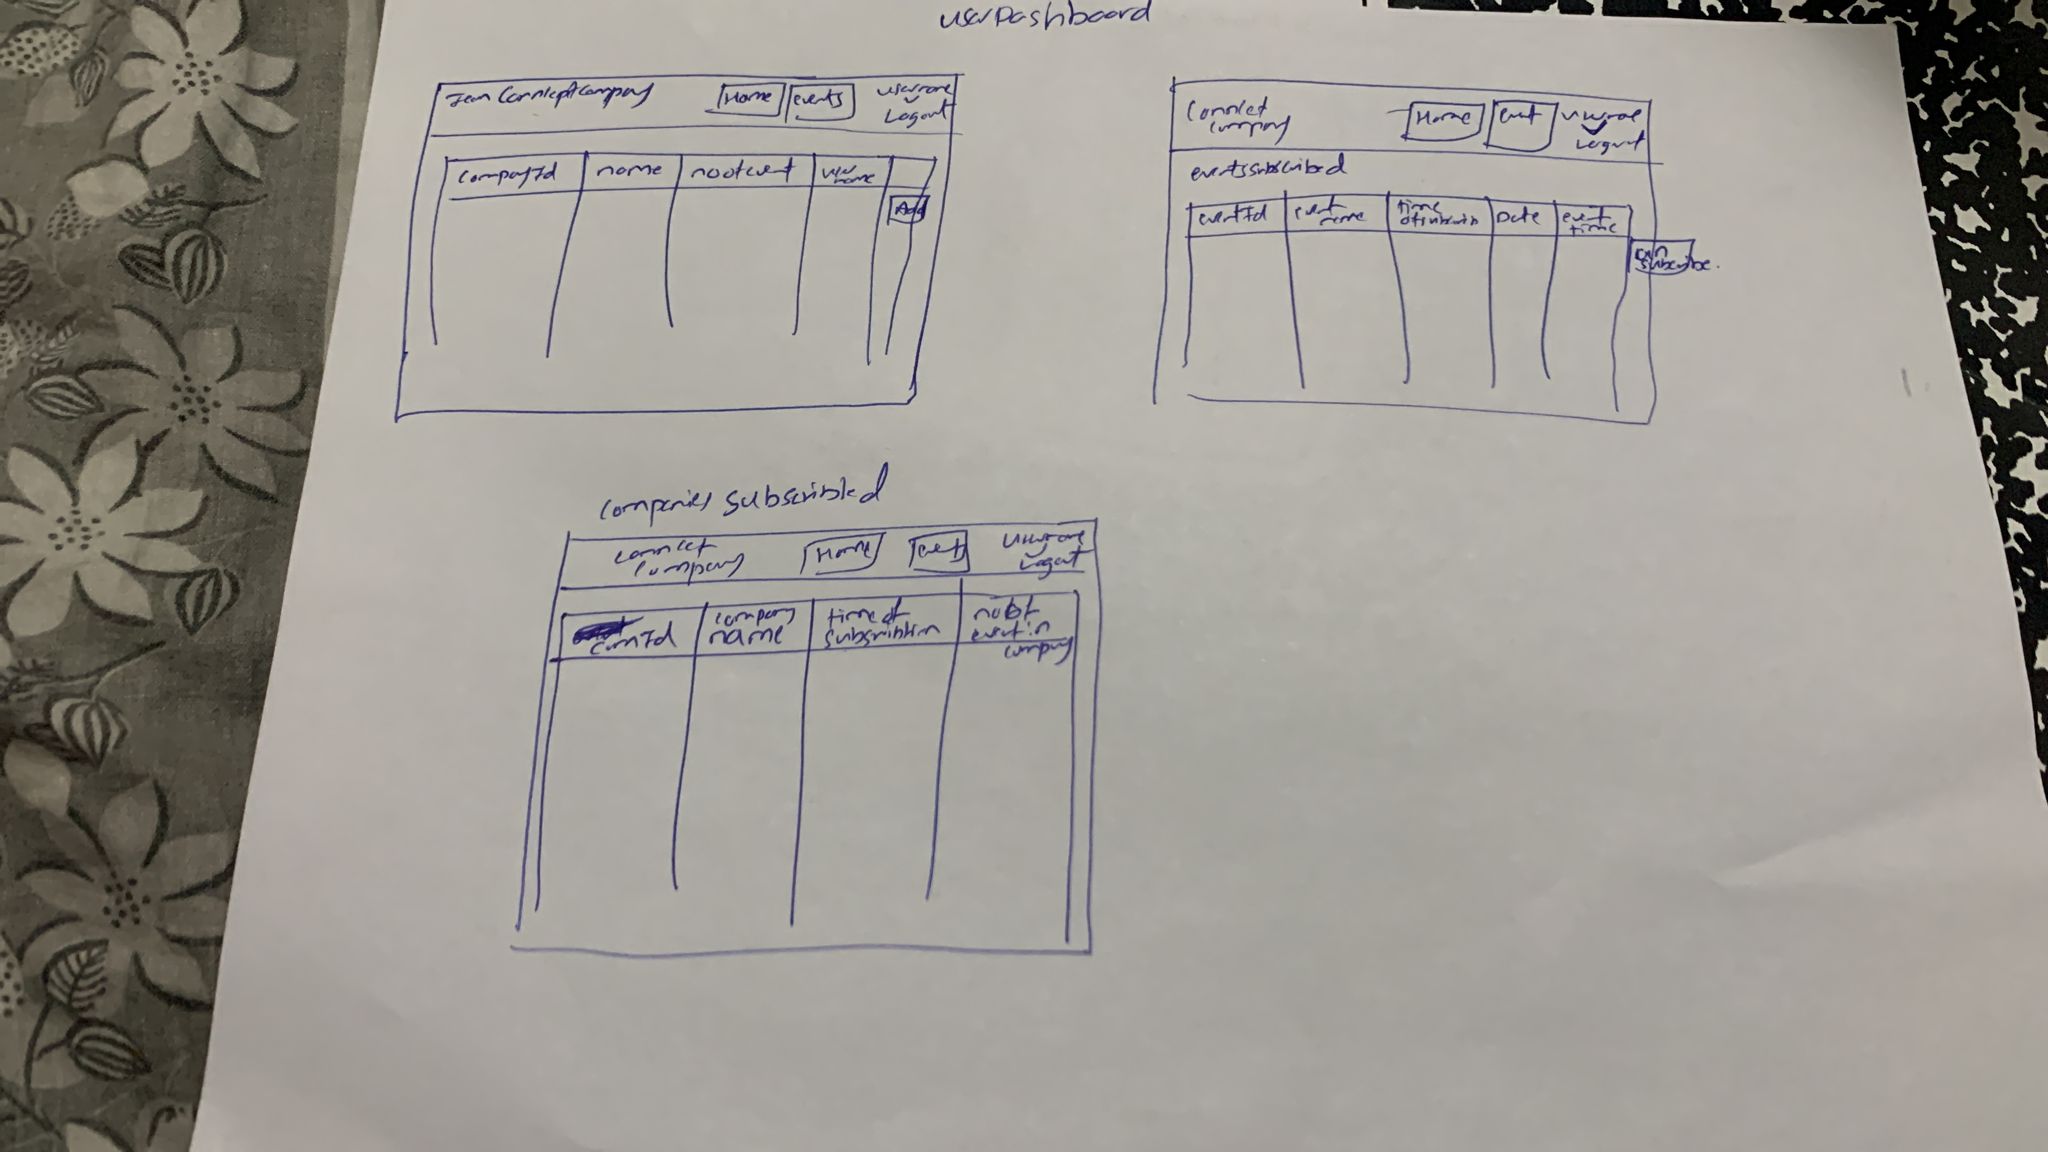 userDashboard
Company
Home
events
username
Logout
CompanyId
name
noofevent
user
name
Add
Connect
Company
Home
event
username
Logout
eventssubscribed
eventId
event
name
time
Date
event
time
subscribe.
Companies Subscribled
Connect
Company
Home
event
username
Logout
ComId
Company
name
time of
subscribtion
no of
event in
company